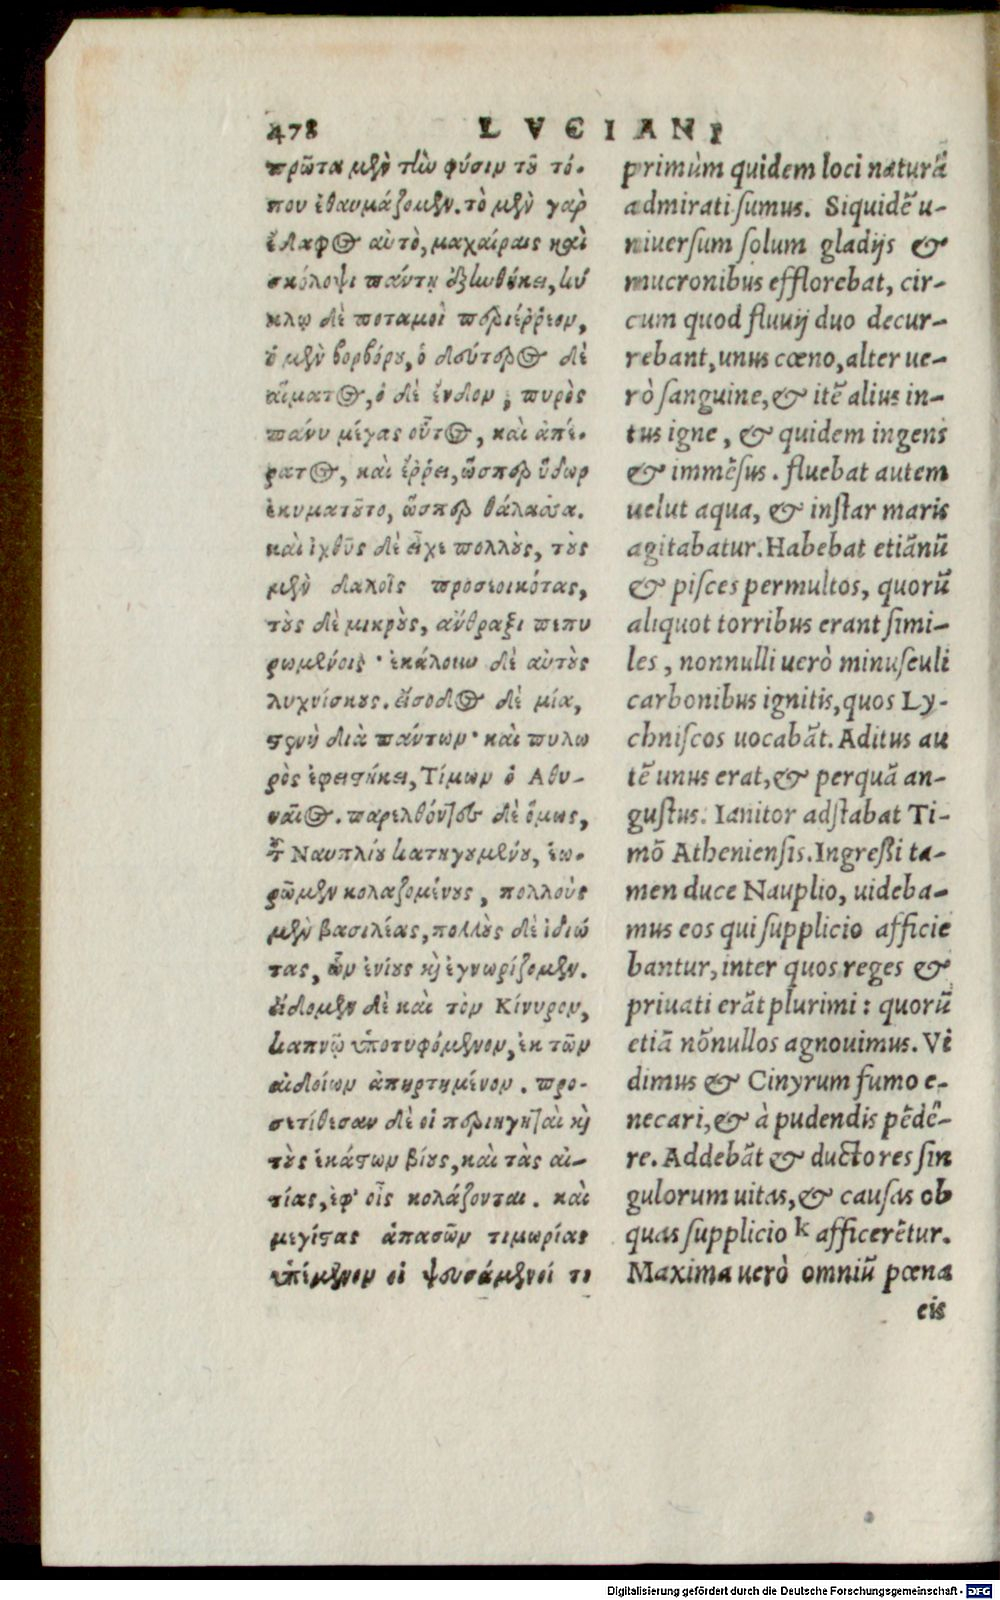 478 LVCIANI
πρῶτα μὲν τὴν φύσιν τοῦ τό-
που ἐθαυμάζομεν. τὸ μὲν γὰρ
ἔδαφος αὐτὸ, μαχαίραις καὶ
σκόλοψι πάντη ἐξηνθήκει, κύ
κλῳ δὲ ποταμοὶ περιέῤῥεον,
ὁ μὲν βορβόρου, ὁ δεύτερος δὲ
αἵματος, ὁ δὲ ἔνδον, πυρὸς
πάνυ μέγας οὗτος, καὶ ἀπέ-
ρατος, καὶ ἔῤῥει, ὥσπερ ὕδωρ
ἐκυματοῦτο, ὥσπερ θάλασσα.
καὶ ἰχθῦς δὲ εἶχε πολλοὺς, τοὺς
μὲν δαλοῖς προσεοικότας,
τοὺς δὲ μικροὺς, ἄνθραξι πεπυ
ρωμένοις· ἐκάλουν δὲ αὐτοὺς
λυχνίσκους. εἴσοδος δὲ μία,
στενὴ διὰ πάντων· καὶ πυλω
ρὸς ἐφειστήκει, Τίμων ὁ Αθη-
ναῖος. παρελθόντες δὲ ὅμως,
τοῦ Ναυπλίου καθηγουμένου, ἑω-
ρῶμεν κολαζομένους, πολλοὺς
μὲν βασιλέας, πολλοὺς δὲ ἰδιώ
τας, ὧν ἐνίους κὴ ἐγνωρίζομεν.
εἴδομεν δὲ καὶ τὸν Κίνυρον,
καπνῷ ὑποτυφόμενον, ἐκ τῶν
αἰδοίων ἀπηρτημένον. προ-
σετίθεσαν δὲ οἱ περιηγηταὶ κὴ
τοὺς ἑκάστων βίους, καὶ τὰς αἰ-
τίας, ἐφ' οἷς κολάζονται. καὶ
μεγίστας ἁπασῶν τιμωρίας
ὑπέμενον οἱ ψευσάμενοί τι
primùm quidem loci naturã
admirati sumus. Siquidẽ u-
niuersum solum gladijs &
mucronibus efflorebat, cir-
cum quod fluuij duo decur-
rebant, unus cœno, alter ue-
rò sanguine, & itẽ alius in-
tus igne, & quidem ingens
& immẽsus. fluebat autem
uelut aqua, & instar maris
agitabatur. Habebat etiãnũ
& pisces permultos, quorũ
aliquot torribus erant simi-
les, nonnulli uerò minusculi
carbonibus ignitis, quos Ly-
chniscos uocabãt. Aditus au
tẽ unus erat, & perquã an-
gustus. Ianitor adstabat Ti-
mõ Atheniensis. Ingressi ta-
men duce Nauplio, uideba-
mus eos qui supplicio afficie
bantur, inter quos reges &
priuati erãt plurimi: quorũ
etiã nõnullos agnouimus. Vi
dimus & Cinyrum fumo e-
necari, & à pudendis pẽdẽ-
re. Addebãt & ductores sin
gulorum uitas, & causas ob
quas supplicio k afficerẽtur.
Maxima uerò omniũ pœna
eis
Digitalisierung gefördert durch die Deutsche Forschungsgemeinschaft - DFG